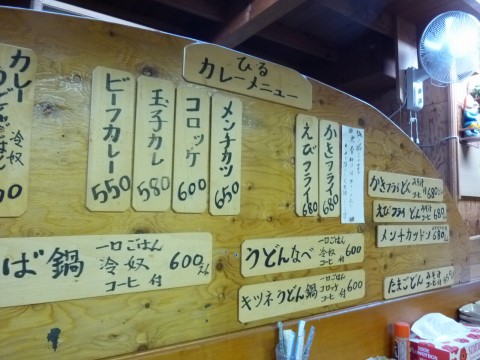 ひる
カレーメニュー
カレー
冷奴
ビーフカレー 550
玉子カレ 580
コロッケ 600
メンチカツ 650
えびフライ 680
かきフライ 680
かきフライどん みそ汁 コーヒ 680
えびフライ どん みそ汁 コーヒ 680
メンチカツドン 680
たまごどん みそ汁 コーヒ
ば鍋 一口ごはん 冷奴 コーヒ 付 600
うどんなべ 一口ごはん 冷奴 コーヒ 付 600
キツネうどん鍋 一口ごはん コロッケ コーヒ 付 600